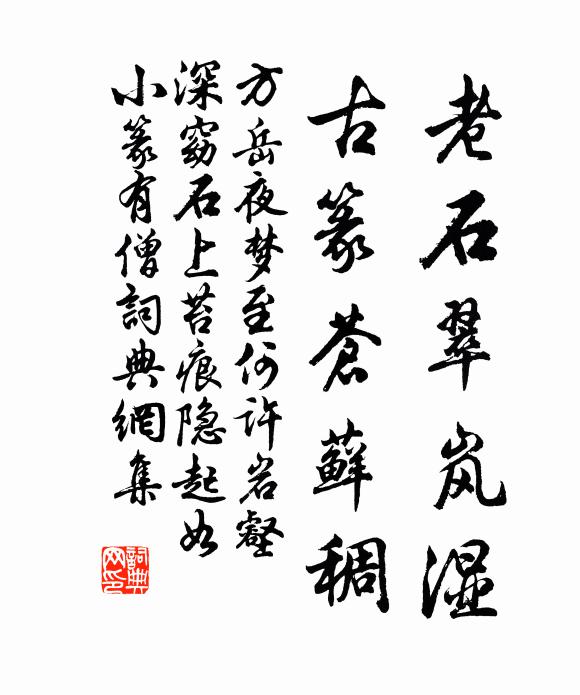 老石翠岚湿
古篆苍藓稠
方岳夜梦至何许岩壑
深窈石上苔痕隐起如
小篆有僧詞典網集
詞典网印